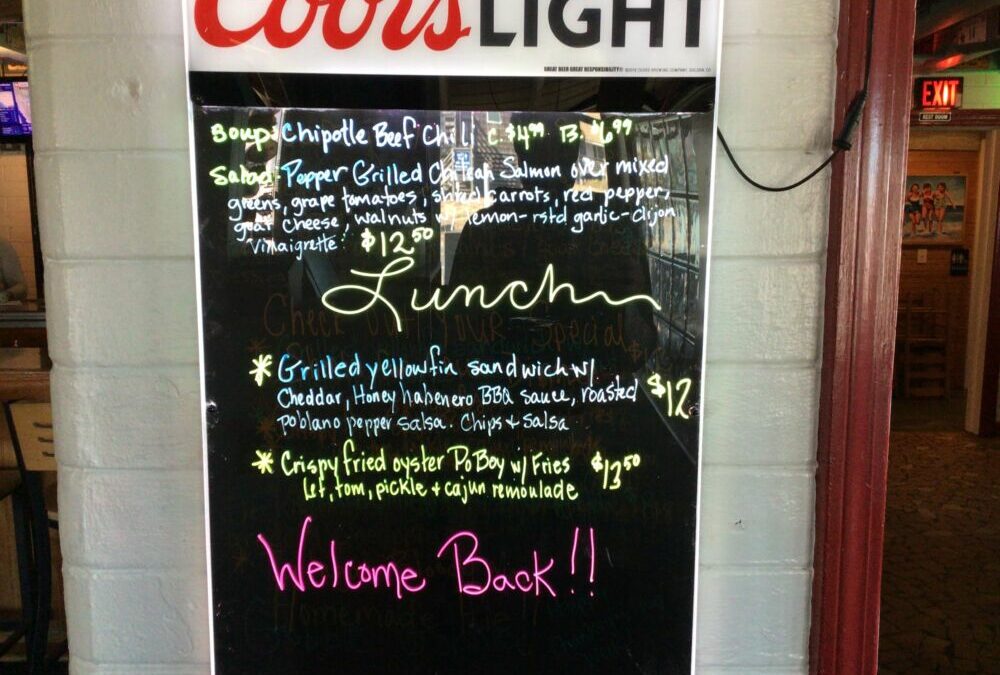 Coors LIGHT
GREAT BEER GREAT RESPONSIBILITY®
Soup: Chipotle Beef Chili C. $4.99 B. $6.99
Salad: Pepper Grilled Chilean Salmon over mixed
greens, grape tomatoes, shred carrots, red pepper,
goat cheese, walnuts w/ lemon-rstd garlic-dijon
Vinaigrette $12.50
Lunch
* Grilled yellowfin sandwich w/
Cheddar, Honey habenero BBQ sauce, roasted $12
poblano pepper salsa. Chips + Salsa
* Crispy fried oyster Po Boy w/ Fries $13.50
Let, tom, pickle + cajun remoulade
Welcome Back!!
EXIT
REST ROOM